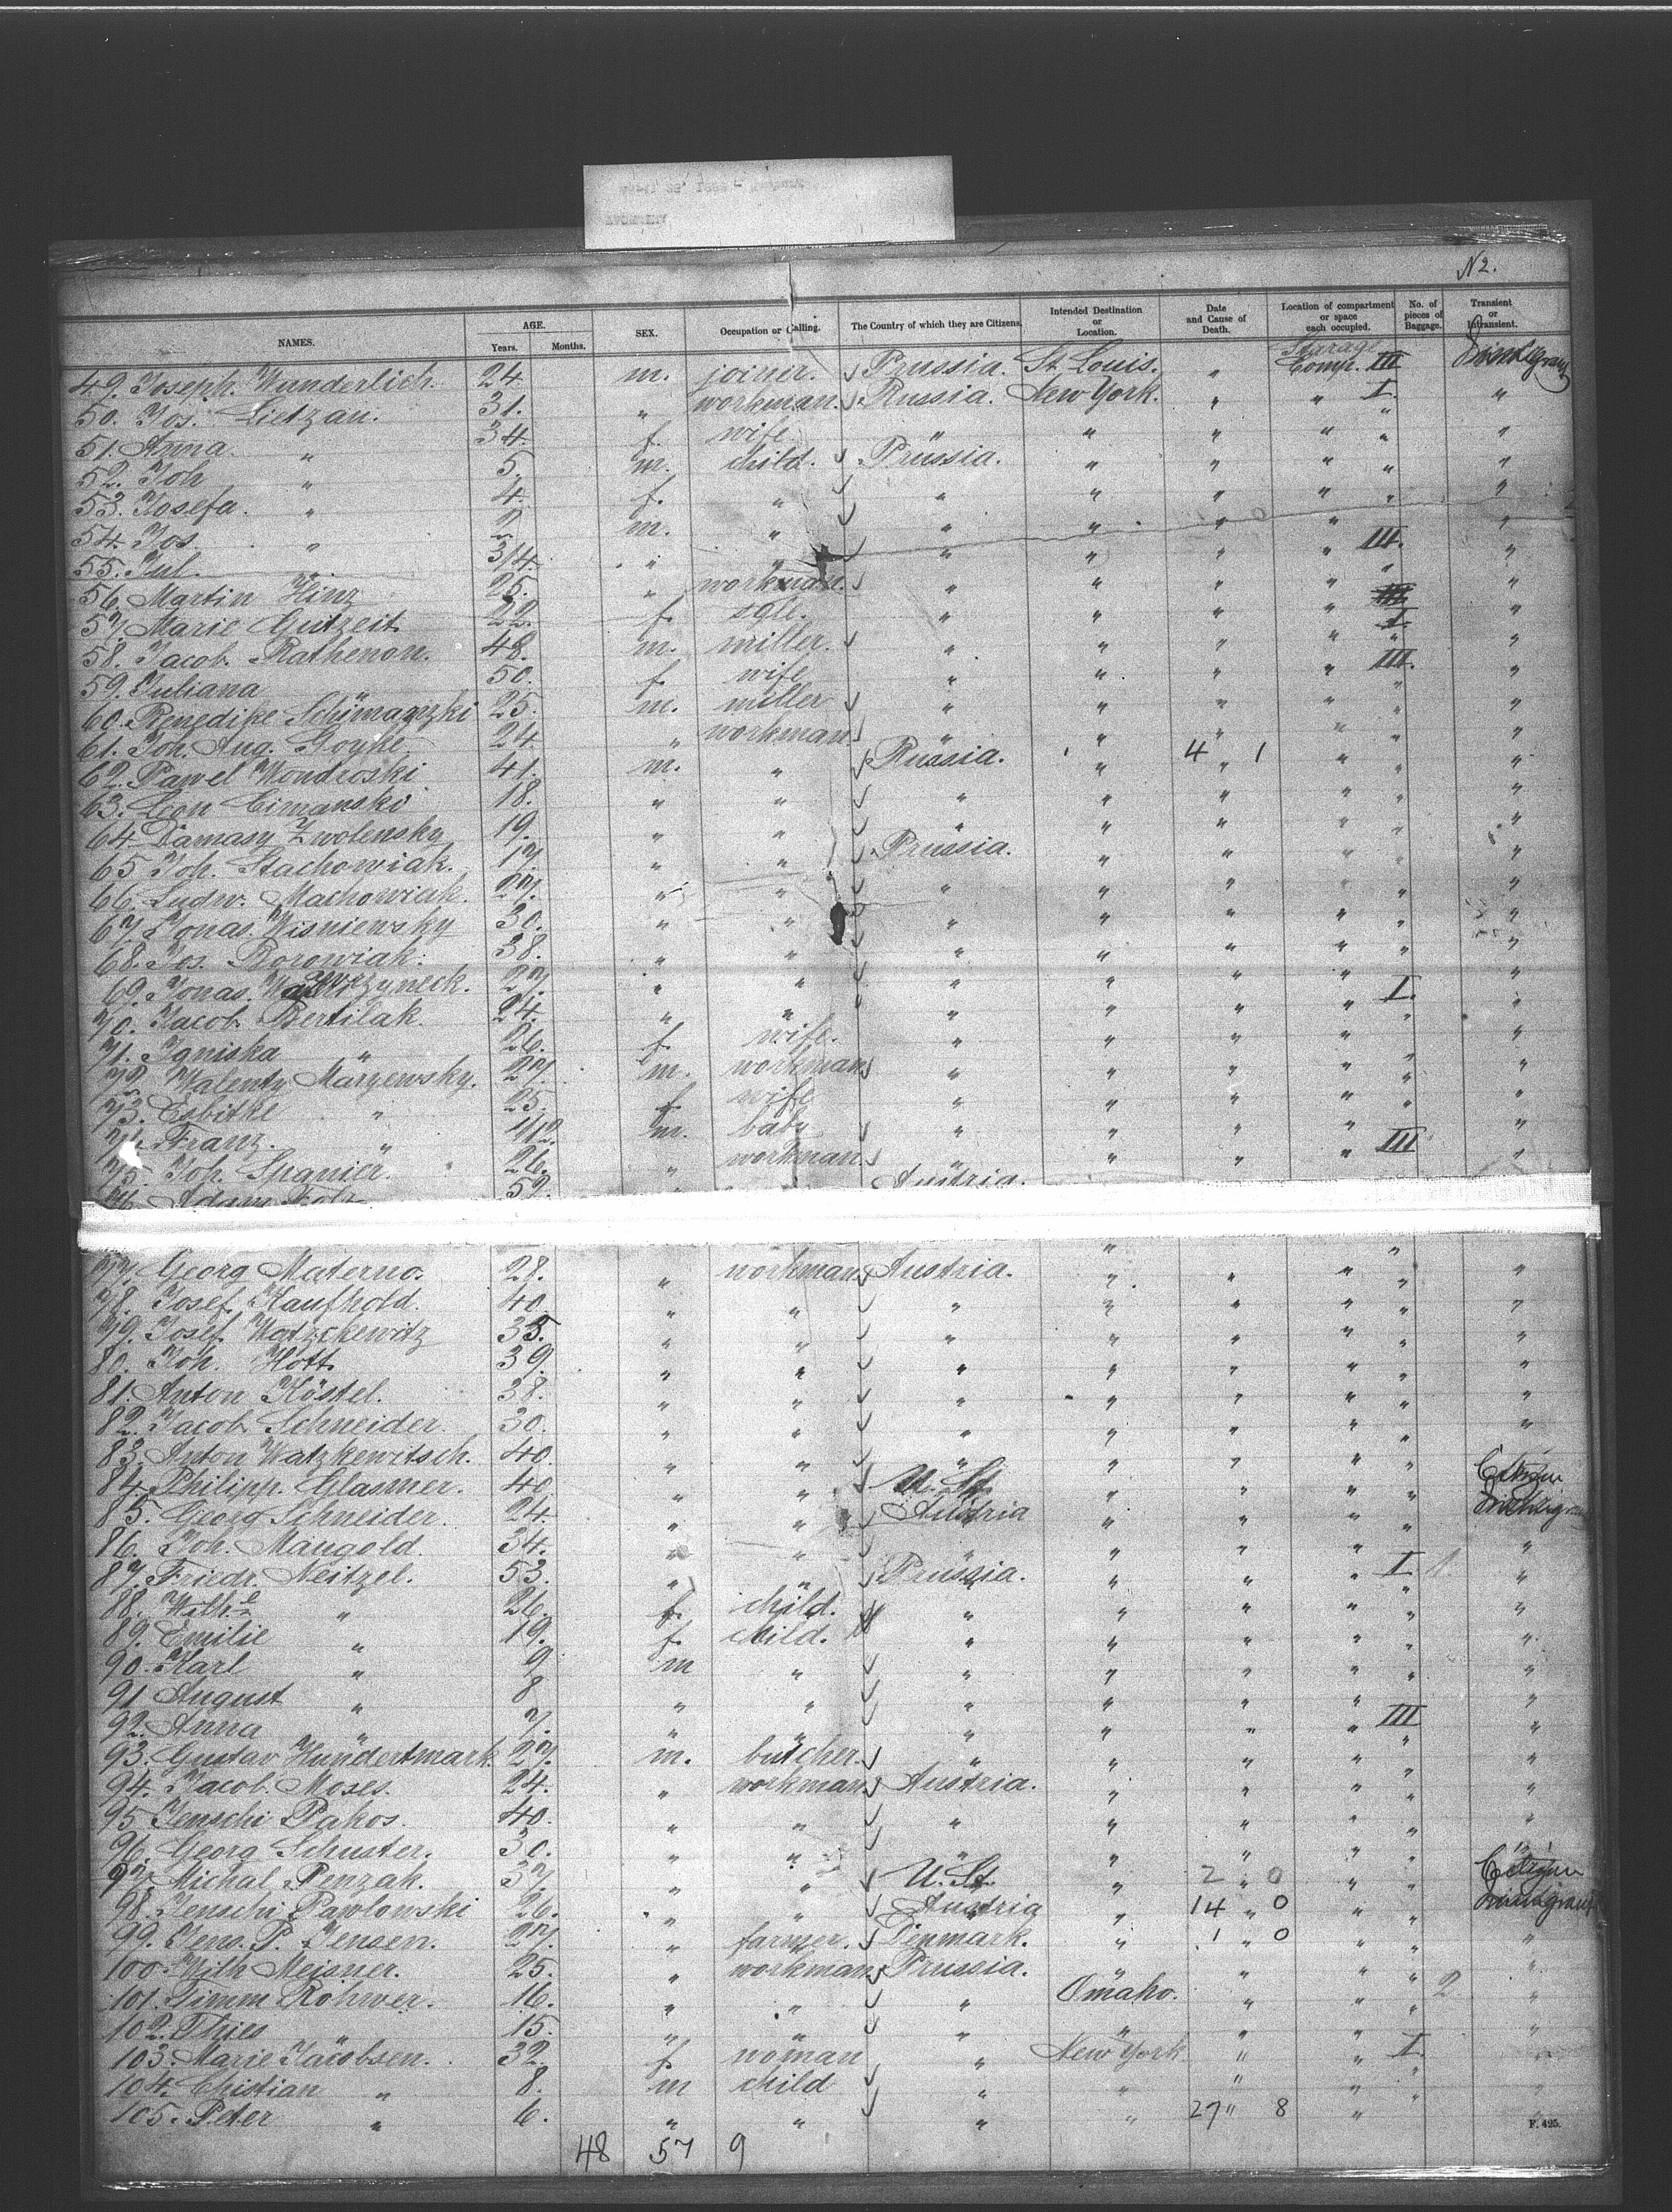 N2.
NAMES. AGE. Years. Months. SEX. Occupation or Calling. The Country of which they are Citizens. Intended Destination or Location. Date and Cause of Death. Location of compartment or space each occupied. No. of pieces of Baggage. Transient or Intransient.
49. Joseph. Wunderlich. 24 m. joiner. Prussia. St. Louis. " Comp. III
50. Jos. Lietzau. 31. " workman. Russia. New York. " " I "
51. Anna. " 34. f. wife " " " " " "
52. Joh " 5. m. child. Prussia. " " " " "
53. Josefa. " 4. f. " " " " " " "
54. Jos. " 2 m. " " " " " "
55. Jul. 3/4. " " " " " " III. "
56. Martin Hinz 25. " workman. " " " " " "
57. Marie Gutzeit 22. f. sgle. " " " " I. "
58. Jacob. Rathenon. 48. m. miller. " " " " " "
59. Juliana 50. f. wife " " " " III. "
60. Benedike Schimanzki 25. m. miller " " " " " "
61. Joh. Aug. Goyke. 24 " workman " " " " " "
62. Pawel Wondroski 41. m. " Russia. " 4 " 1 " " "
63. Leon Cimanski 18. " " " " " " " "
64. Damasy Zwolensky 19. " " " " " " " "
65 Joh. Stachowiak. 17. " " Prussia. " " " " "
66. Ludw. Machowiak. 27. " " " " " " " "
67. Jonas. Wisniewsky 30. " " " " " " " "
68. Jos. Borowiak. 38. " " " " " " " "
69. Jonas. Wawrzyneck. 27. " " " " " " "
70. Jacob Bertilak. 24. " " " " " " I. "
71. Igniska " 26. f. wife. " " " " " "
72. Valenty Maryewsky. 27. m. workman " " " " " "
73. Esbitke " 25. f. wife " " " " " "
74. Franz. " m. baby " " " " " "
75. Joh. Spanier. 26. " workman. " " " " III "
76. Adam 52. Austria.
77. Georg Materno. 28. " workman. Austria. " " " " "
78. Josef. Kaufhold. 40. " " " " " " " "
79. Josef. Watzckewitz 35. " " " " " " " "
80. Joh. Hott 39. " " " " " " " "
81. Anton Köstel. 38. " " " " " " " "
82. Jacob. Schneider. 30. " " " " " " " "
83. Anton Watzkewitsch. 40. " " " " " " "
84. Philipp. Glasmer. 40. " " U. St. " " " " Citizen
85. Georg Schneider. 24. " " Austria " " " "
86. Joh. Mangold. 34. " " " " " " "
87. Friedr. Neitzel. 53. " " Prussia. " " " I 1. "
88. Wilh. " 26. f. child. " " " " " "
89. Emilie " 19. f. child. " " " " " "
90. Karl " 9 m " " " " " " "
91 August " 8 " " " " " " " "
92. Anna " 7. " " " " " " III "
93. Gustav Hundertmark. 27. m. butcher. " " " " " "
94. Jacob. Moses. 24. " workman. Austria. " " " " "
95 Jenschi Pakos. 40. " " " " " " " "
96. Georg Schuster. 30. " " " " " " " "
97. Michal Penzak. 37. " " U. St. " 2 " 0 " " Citizen
98. Jenschi Pawlowski 26. " " Austria " 14 " 0 " "
99. Jens. P. Jensen. 27. " farmer. Denmark. " 1 " 0 " " "
100. Wilh Meisner. 25. " workman. Prussia. " " " " "
101. Timm Rohwer. 16. " " " Omaho. " " " 2 "
102. Thies " 15. " " " " " " " "
103. Marie Jacobsen. 32 f. woman " New York. " " I
104. Chistian " 8. m child " " " " " "
105. Peter " 6. " " " " 27 " 8 "
F. 425.
48 57 9